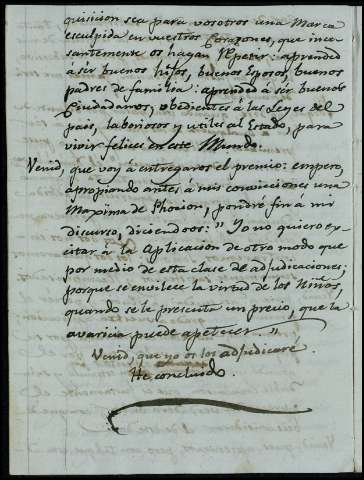 quisicion sea para vosotros una Marca
esculpida en vuestros Corazones, que ince-
santemente os hagan repetir: aprended
á sér buenos hijos, buenos Esposos, buenos
padres de familia: aprended á sér buenos
Ciudadanos, obedientes á las Leyes del
pais, laboriosos y utiles al Estado, para
vivir felices en este Mundo.
Venid, que voy á entregaros el premio: empero,
apropiando antes á mis convicciones una
Maxîma de Phocion, pondré fin a mi
discurso, diciendoos: "Yo no quiero ex-
citar á la Aplicacion de otro modo que
por medio de esta clase de adjudicaciones;
porque se envilece la virtud de los Niños,
quando se le presenta un precio, que la
avaricia puede apetecer."
Venid, que yo os los adjudicaré.
He concluido.